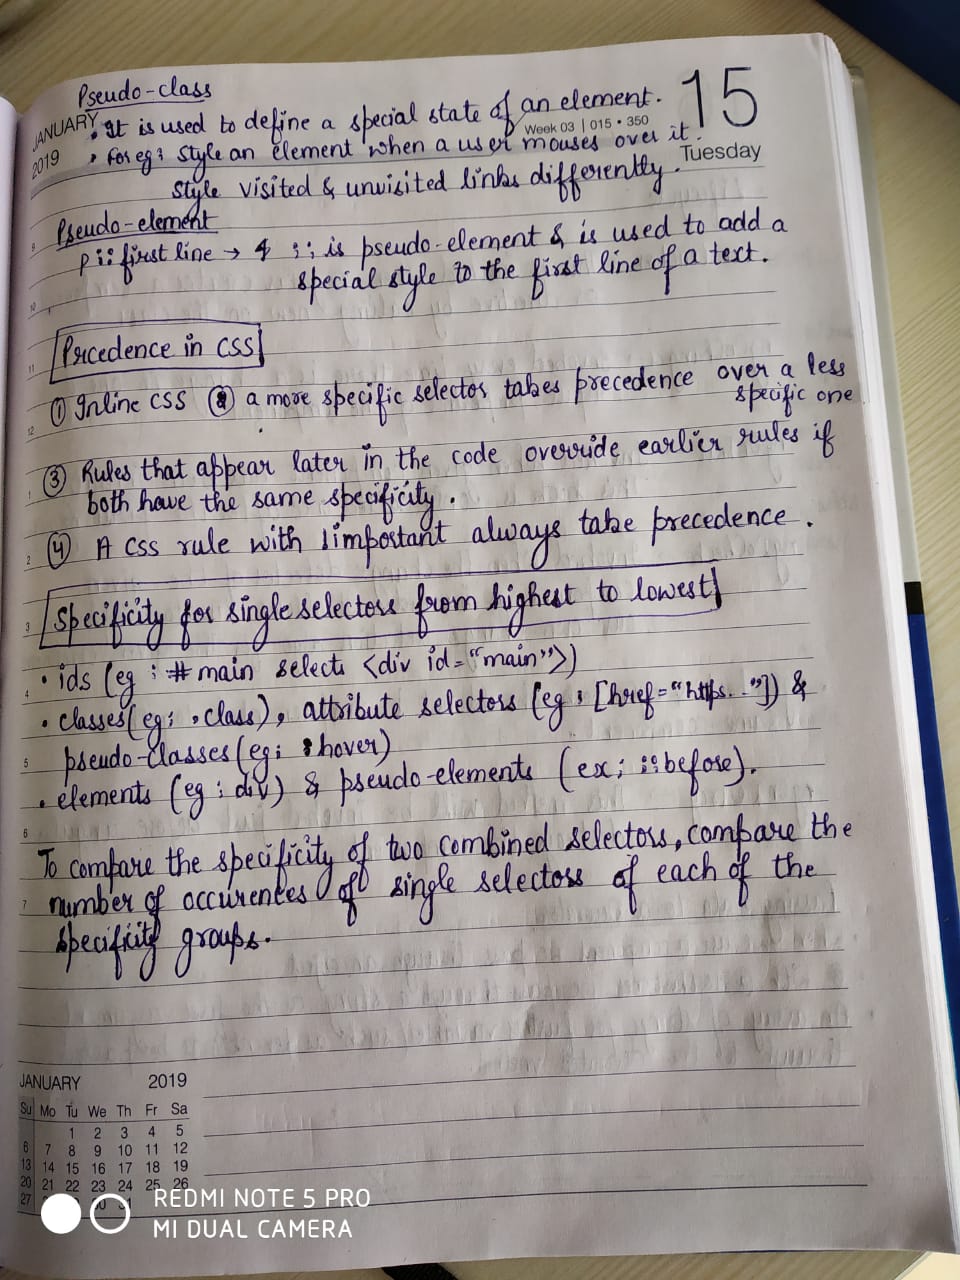 Pseudo-class
JANUARY
2019
15
Week 03 | 015 • 350
Tuesday
• It is used to define a special state of an element.
• For eg: Style an element when a user mouses over it.
Style visited & unvisited links differently.
Pseudo-element
p::first line → :: is pseudo-element & is used to add a
special style to the first line of a text.
Precedence in CSS
① Inline CSS ② a more specific selector takes precedence over a less
specific one
③ Rules that appear later in the code override earlier rules if
both have the same specificity.
④ A CSS rule with !important always take precedence.
Specificity for single selectors from highest to lowest
• ids (eg: #main selects <div id="main">)
• classes (eg: .class), attribute selectors (eg: [href="https..."]) &
pseudo-classes (eg: :hover)
• elements (eg: div) & pseudo-elements (ex: ::before).
To compare the specificity of two combined selectors, compare the
number of occurences of single selectors of each of the
specificity groups.
JANUARY 2019
Su Mo Tu We Th Fr Sa
1 2 3 4 5
6 7 8 9 10 11 12
13 14 15 16 17 18 19
20 21 22 23 24 25 26
27
REDMI NOTE 5 PRO
MI DUAL CAMERA